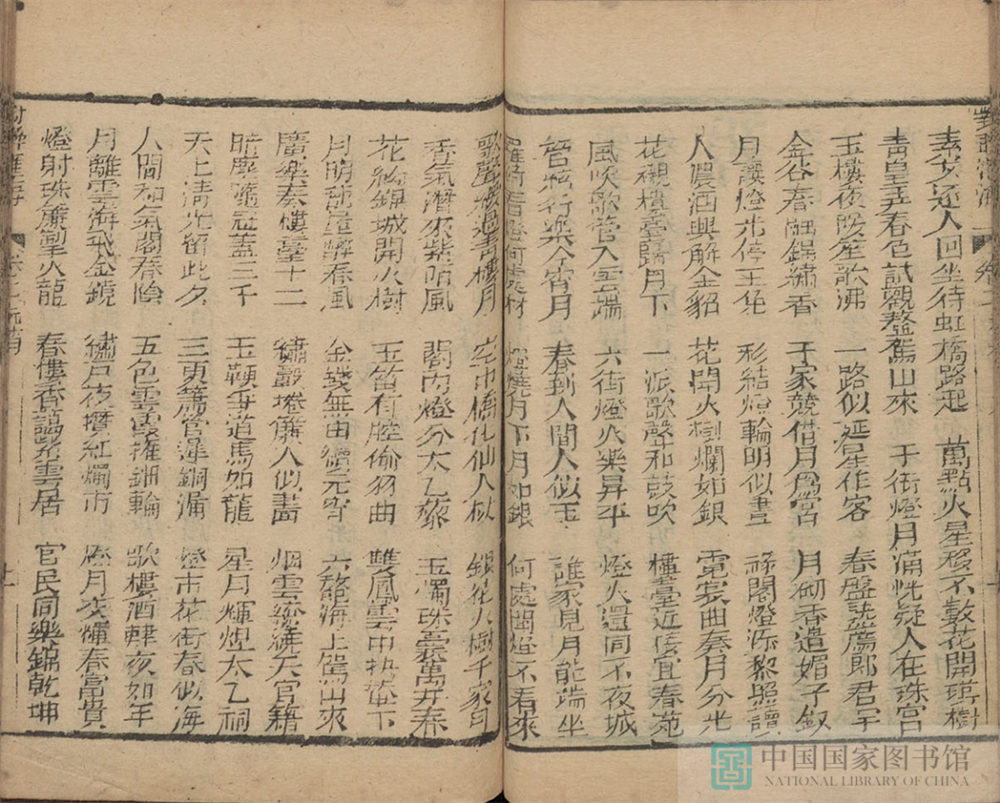 素女還人回坐待虹橋路起 萬點火星移不數花開琪樹
青皇弄春色試觀鰲駕山來 千街燈月滿恍疑人在珠宮
玉樓夜暖座歌沸 一路似延星作客 春盤說薦郎君宇
金谷春融錦繡香 千家競借月為宮 月砌香遺媚子釵
月護燈光停玉 彩結煙輪明似晝 祿閣燈添黎照讀
人濃酒興解金貂 花開火樹爛如銀 霓裳曲奏月分光
花襯樓臺歸月下 一派歌聲和鼓吹 樓臺近侍宜春苑
風吹歌管入雲端 六街燈火樂昇平 燈火還同不夜城
管絃行樂今宵月 春到人間人似玉 誰家見月能端坐
燈燒月下月如銀 何處聞燈不看來
歌聲 青樓月 空中橋化仙人杖 銀花火樹千家
香氣潛來紫陌風 閣內燈分太乙藜 玉燭珠臺萬井春
花 錦城開火樹 玉笛有腔偷羽曲 雙鳳雲中扶輦下
月明 春風 金錢無 六鰲海上駕山來
廣樂奏樓臺十二 繡轂捲簾人似畫 烟雲繚繞天官籍
暗塵隨冠蓋三千 玉 爭道馬如龍 星月輝煌太乙祠
天上清光留此夕 三更簫管 銅漏 燈市花街春似海
人間和氣閣春陰 五色雲霞擁鈿輪 歌樓酒肆夜如年
月離雲海飛金鏡 繡戶夜攢紅燭市 燈月交輝春富貴
燈射珠簾掣火龍 春樓香藹紫雲居 官民同樂錦乾坤
中国国家图书馆
NATIONAL LIBRARY OF CHINA